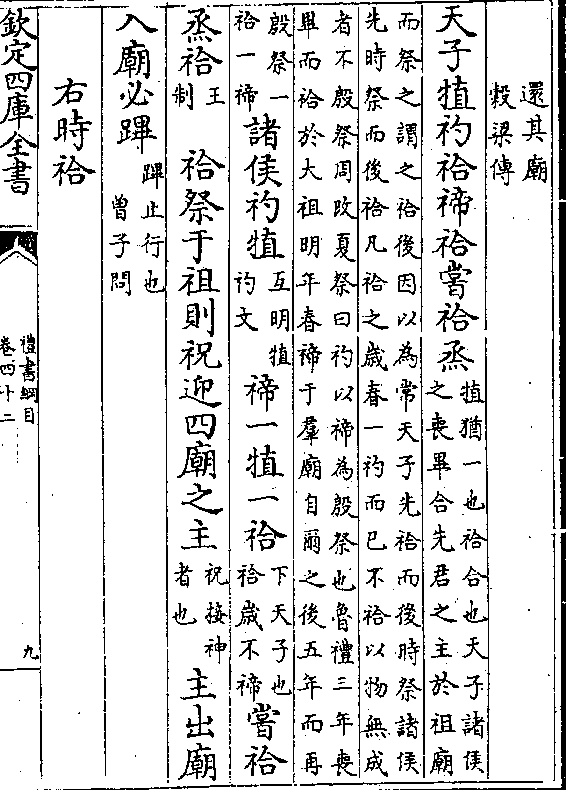 還其廟
穀梁傳
天子犆礿祫禘祫嘗祫烝
犆猶一也祫合也天子諸侯
之喪畢合先君之主於祖廟
而祭之謂之祫後因以為常天子先祫而後時祭諸侯
先時祭而後祫凡祫之歲春一礿而已不祫以物無成
者不殷祭周改夏祭曰礿以禘為殷祭也魯禮三年喪
畢而祫於大祖明年春禘于羣廟自爾之後五年而再
殷祭一
祫一禘
諸侯礿犆
互明犆
礿文
禘一犆一祫
下天子也
祫歲不禘
嘗祫
烝祫
王
制
祫祭于祖則祝迎四廟之主
祝接神
者也
主出廟
入廟必蹕
蹕止行也
曾子問
右時祫
欽定四庫全書
禮書綱目
卷四十二
九